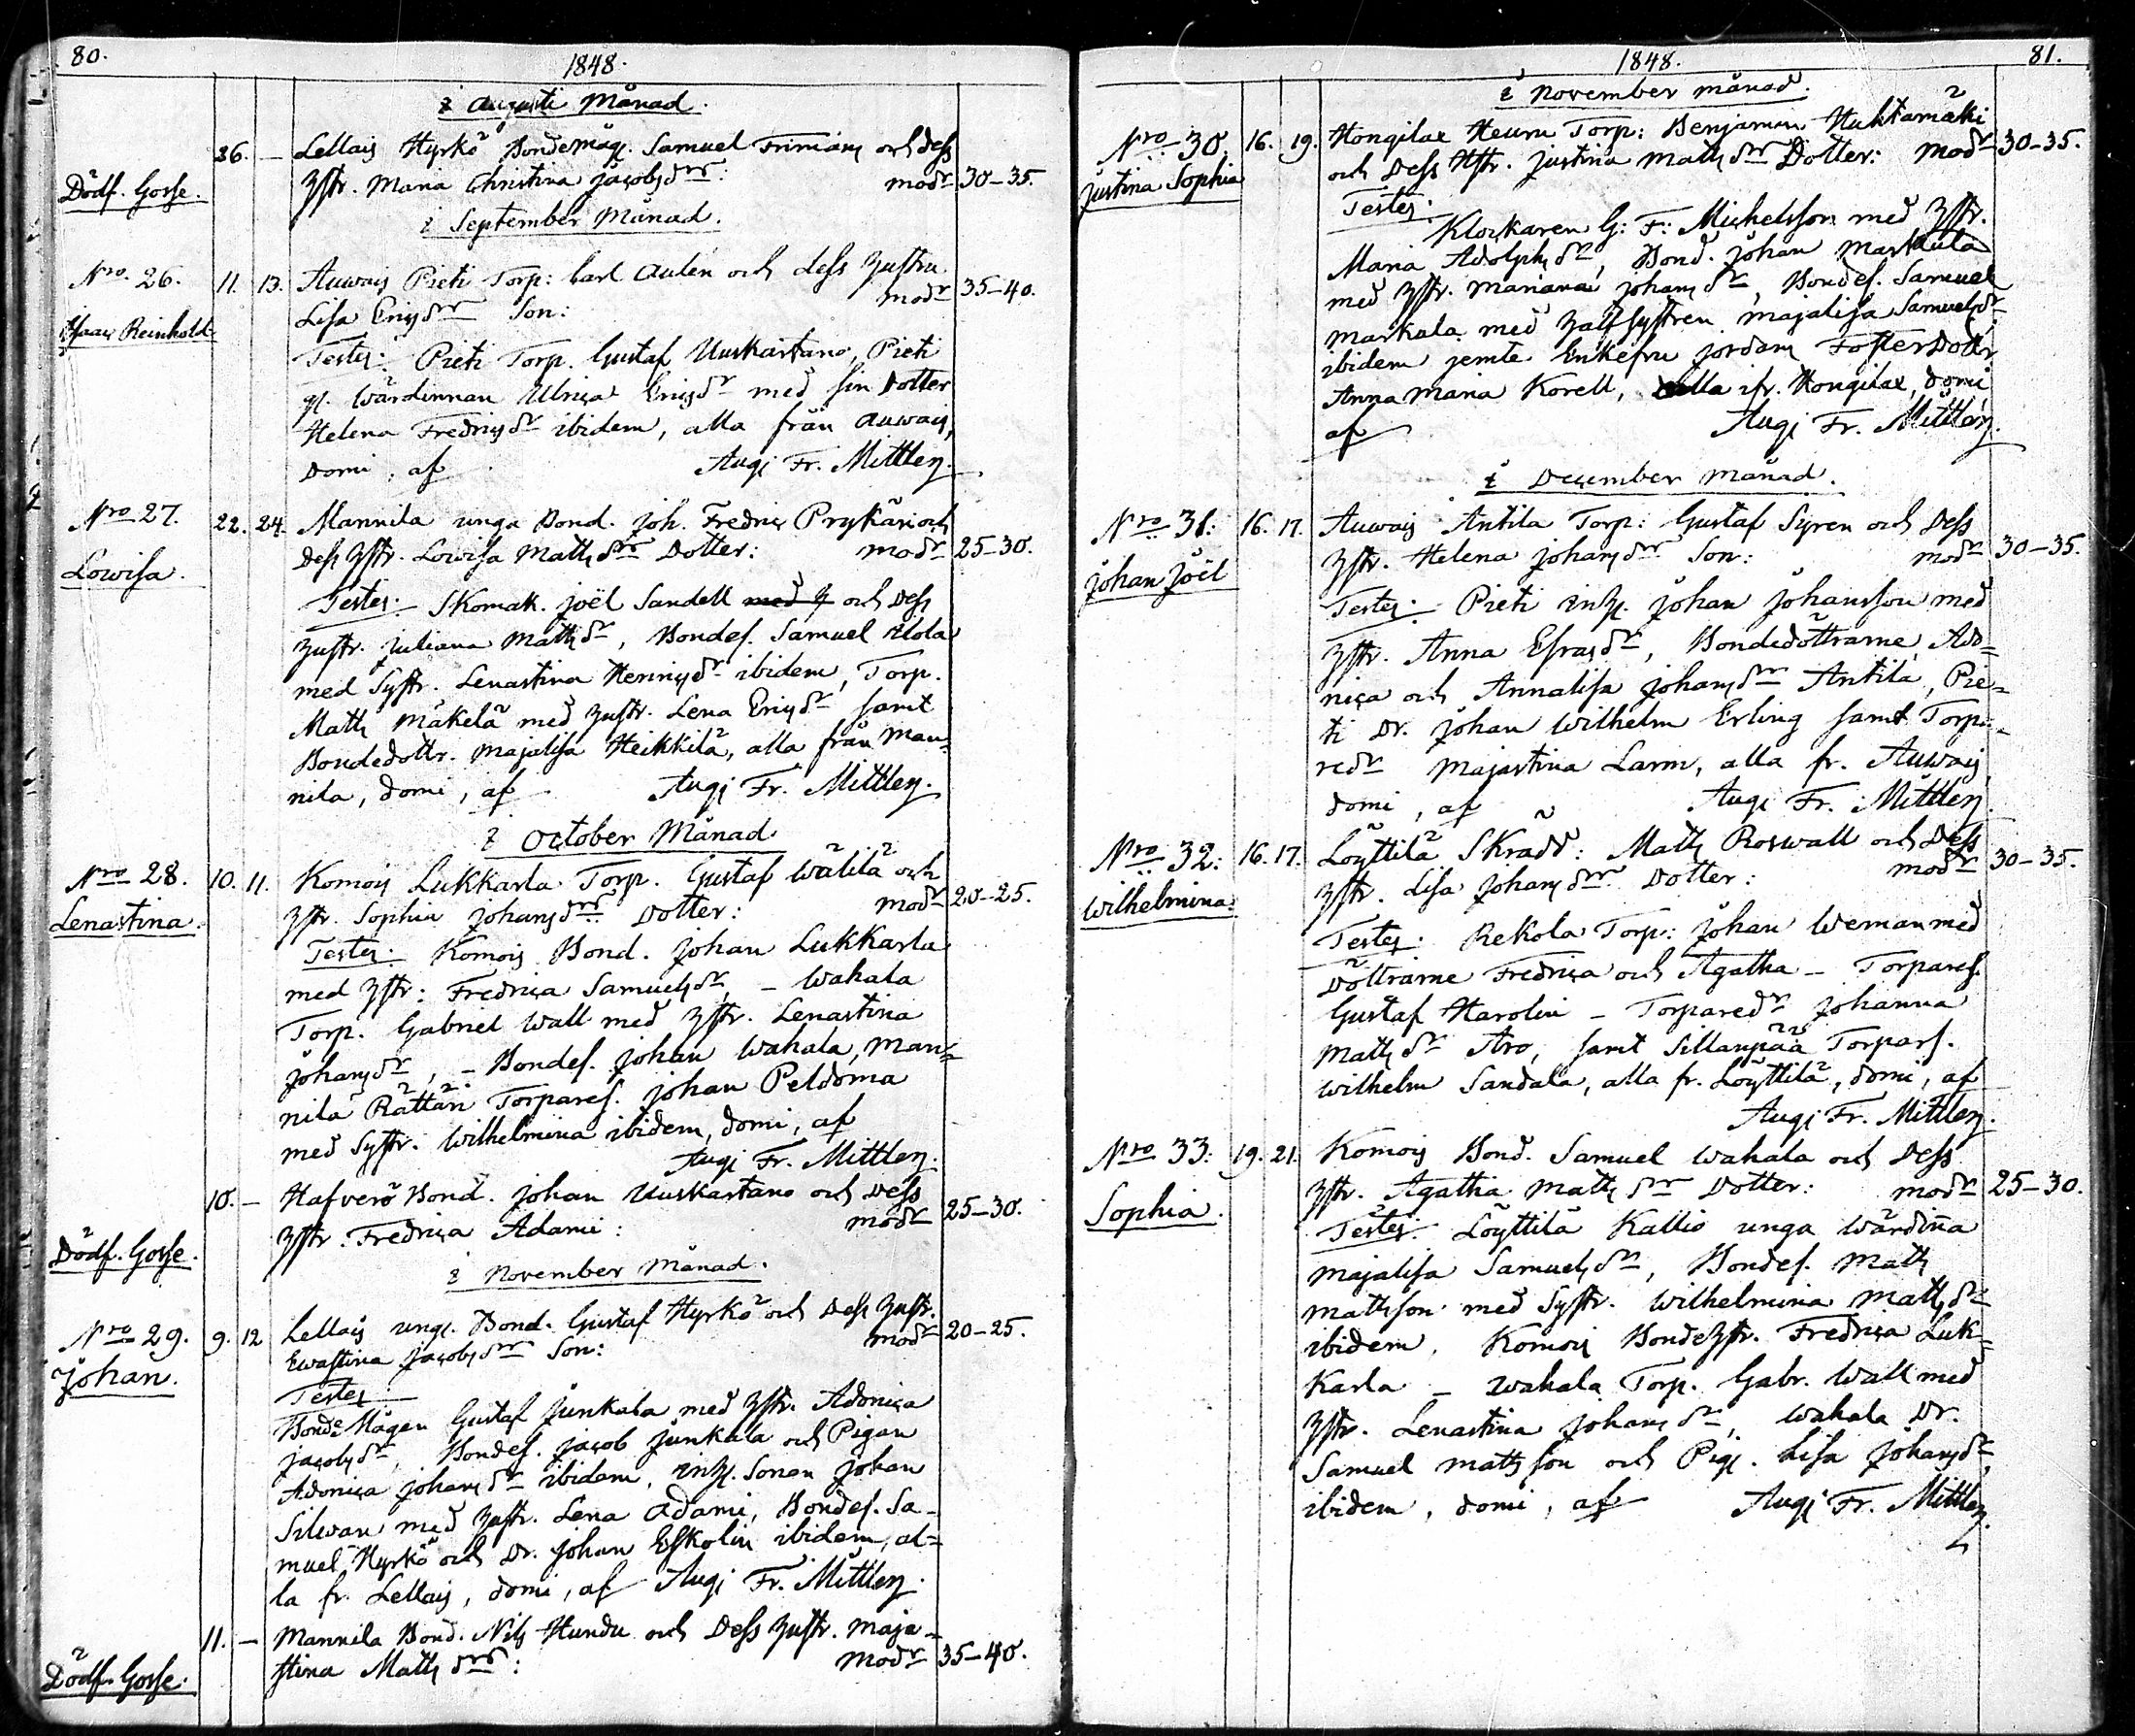 80.
1848.
i Augusti Månad.
26. — Lellais Hyrkö Bondemåg. Samuel Friman och dess
Dödf. Gosse. Hstr. Maria Christina Jacobsdrs: modr 30–35.
i September Månad.
Nro. 26. 11. 13. Auwais Pieti Torp: Carl Aulen och dess hustru
Isaac Reinhold Lisa Ericsdrs Son: modr 35–40.
Testes: Pieti Torp. Gustaf Uuskartano, Pieti
gl. Wärdinnan Ulrica Ericsdr med sin Dotter
Helena Fredricsdr ibidem, alla från Auwais,
domi, af Augi Fr. Mittler.
Nro 27. 22. 24. Mannila unga Bond. Joh. Fredric Prykäri och
Lowisa. Dess Hstr. Lowisa Mattsdrs Dotter: modr 25–30.
Testes: Skomak. Joël Sandell med H och Dess
Hustr. Juliana Mattsdr, Bondes. Samuel Klola
med Systr. Lenastina Henricsdr ibidem, Torp.
Matts Mäkelä med Hustr. Lena Ericsdr samt
Bondedottr. Majalisa Heikkilä, alla från Man=
nila, domi, af Augi Fr. Mittler.
i October Månad.
Nro 28. 10. 11. Komois Lukkarla Torp. Gustaf Wälilä och
Lenastina. Hstr. Sophia Johansdrs Dotter: modr 20–25.
Testes: Komois Bond. Johan Lukkarla
med Hstr: Fredrica Samuelsdr, – Wahala
Torp. Gabriel Wall med Hstr. Lenastina
Johansdr, – Bondes. Johan Wahala, Man=
nila Rättäri Torpares. Johan Peldoma
med Systr. Wilhelmina ibidem, domi, af
Augi Fr. Mittler.
10. — Hafverö Bond. Johan Uuskartano och Dess
Dödf. Gosse. Hstr. Fredrica Adami: modr 25–30.
i November Månad.
Nro 29. 9. 12 Lellais ung. Bond. Gustaf Hyrkö och Dess Hustr.
Johan. Ewastina Jacobsdrs Son: modr 20–25.
Testes:
Bonde Mågen Gustaf Junkala med Hstr. Adonica
Jacobsdr, Bondes. Jacob Junkala och Pigan
Adonica Johansdr ibidem, Inh. Sonen Johan
Silwan med Hustr. Lena Adami, Bondes. Sa=
muel Hyrkö och Dr. Johan Eskolin ibidem, al=
la fr. Lellais, domi, af Augi Fr. Mittler.
11. — Mannila Bond. Nils Hundu och Dess Hustr. Maja=
Dödf. Gosse. stina Mattsdrs: modr 35–40.
1848.
81.
i November månad.
Nro 30. 16. 19. Hongilax Heuru Torp: Benjamin Huhtamäki
Justina Sophia och Dess Hstr. Justina Mattsdrs Dotter: modr 30–35.
Testes:
Klockaren G: F: Michelsson med Hstr.
Maria Adolphsdr, Bond. Johan Markula
med Hstr. Mariana Johansdr, Bondes. Samuel
Markula med Halfsystren Majalisa Samuelsdr
ibidem jemte Enkefru Jordans FosterDottr
Anna Maria Korell, alla ifr. Hongilax, domi,
af Augi Fr. Mittler.
i December Månad.
Nro 31: 16. 17. Auwais Antila Torp: Gustaf Syren och Dess
Johan Joël Hstr. Helena Johansdrs Son: modr 30–35.
Testes: Pieti Inh. Johan Johansson med
Hstr. Anna Esrasdr, Bondedöttrarne, Ado=
nica och Annalisa Johansdr Antila, Pie=
ti Dr. Johan Wilhelm Erling samt Torpa=
redr Majastina Larm, alla fr. Auwais,
domi, af Augi Fr. Mittler.
Nro 32: 16. 17. Löyttilä Skrädd: Matts Roswall och Dess
Wilhelmina: Hstr. Lisa Johansdrs Dotter: modr 30–35.
Testes: Rekola Torp: Johan Weman med
Döttrarne Fredrica och Agatha – Torpares.
Gustaf Harolin – Torparedr Johanna
Mattsdr Aro, samt Sillanpää Torpars.
Wilhelm Sandala, alla fr. Löyttilä, domi, af
Augi Fr. Mittler.
Nro 33: 19. 21. Komois Bond. Samuel Wahala och Dess
Sophia. Hstr. Agatha Mattsdrs Dotter: modr 25–30.
Testes: Löyttilä Kallio unga Wärdiña
Majalisa Samuelsdr, Bondes. Matts
Mattsson med Systr. Wilhelmina Mattsdr
ibidem, Komois Bondehstr. Fredrica Luk=
karla – Wahala Torp. Gabr. Wall med
Hstr. Lenastina Johansdr, Wahala Dr.
Samuel Mattsson och Pig. Lisa Johansdr,
ibidem, domi, af Augi Fr. Mittler.